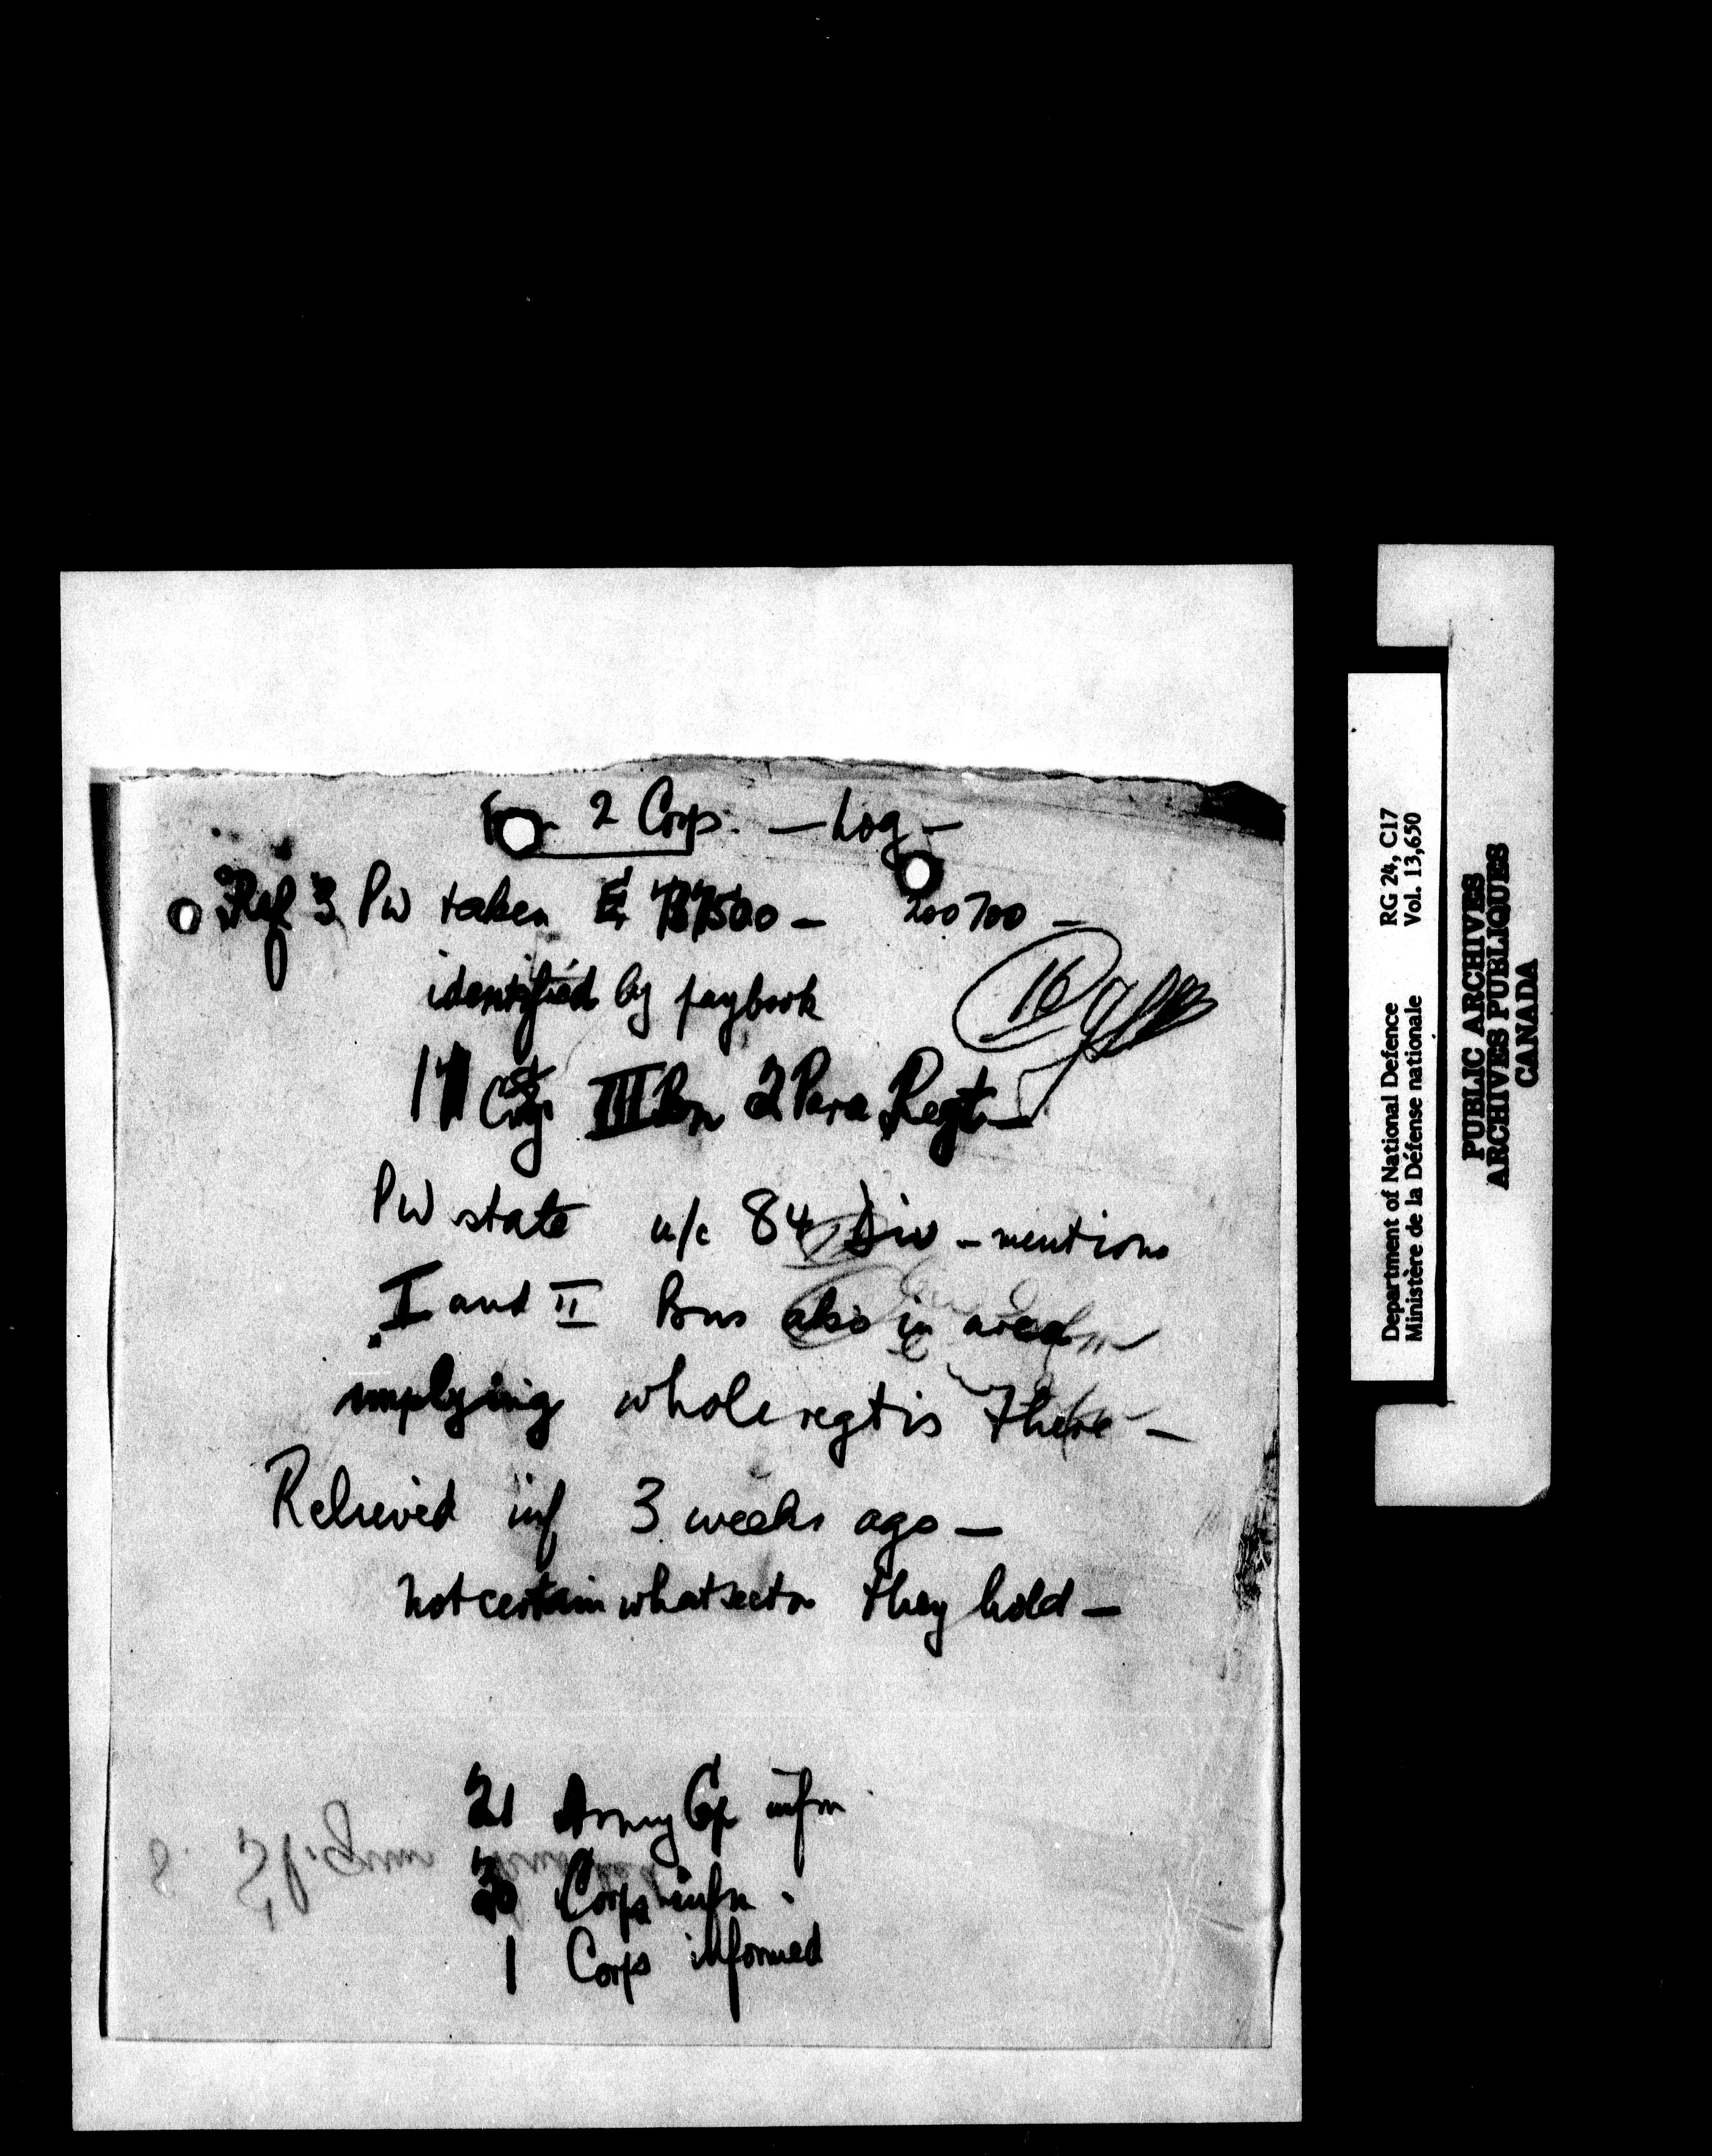 2 Corps. — Log —
Ref 3 PW taken E 767500 — 200700 —
identified by paybook
11 Coy III Bn 2 Para Regt —
PW state u/c 84 Div — mentions
I and II Bns also in area
implying whole regt is there —
Relieved inf 3 weeks ago —
not certain what sector they hold —
21 Army Gp infm
30 Corps infm.
1 Corps informed
Department of National Defence RG 24, C17
Ministère de la Défense nationale Vol. 13,650
PUBLIC ARCHIVES
ARCHIVES PUBLIQUES
CANADA